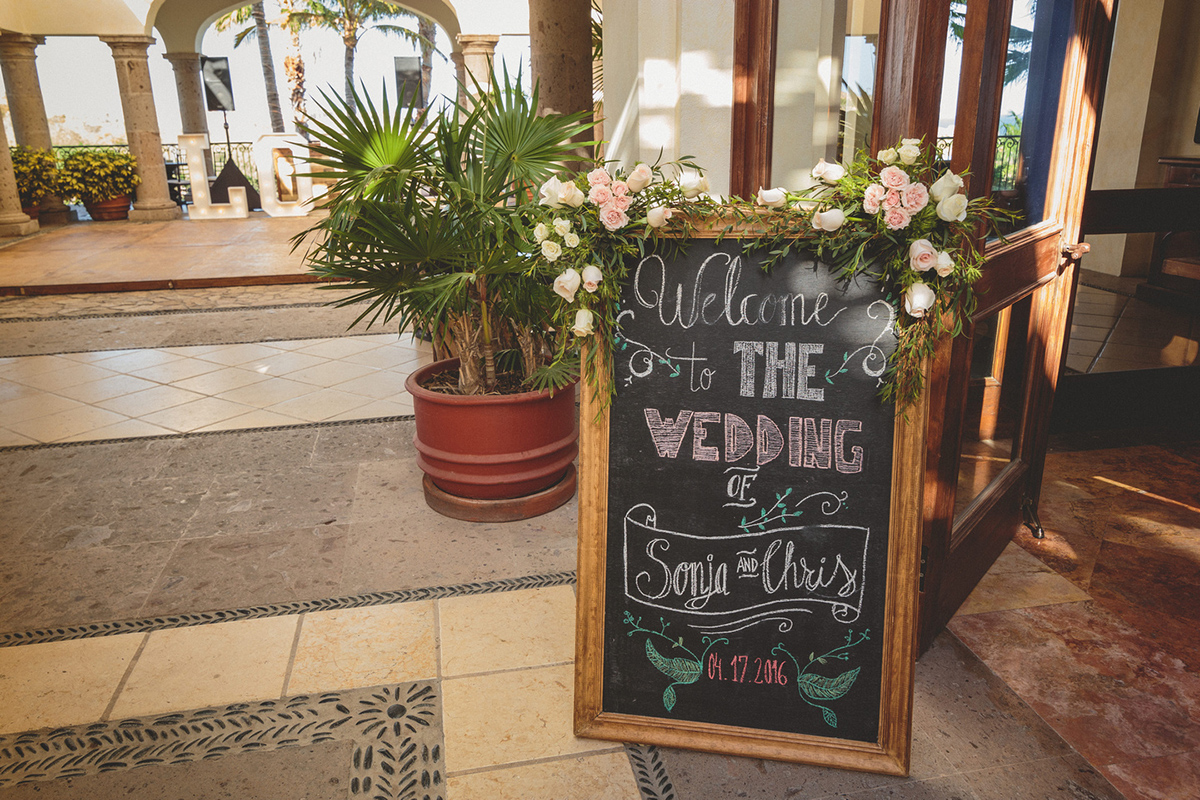 Welcome
to THE
WEDDING
OF
Sonja AND Chris
04.17.2016